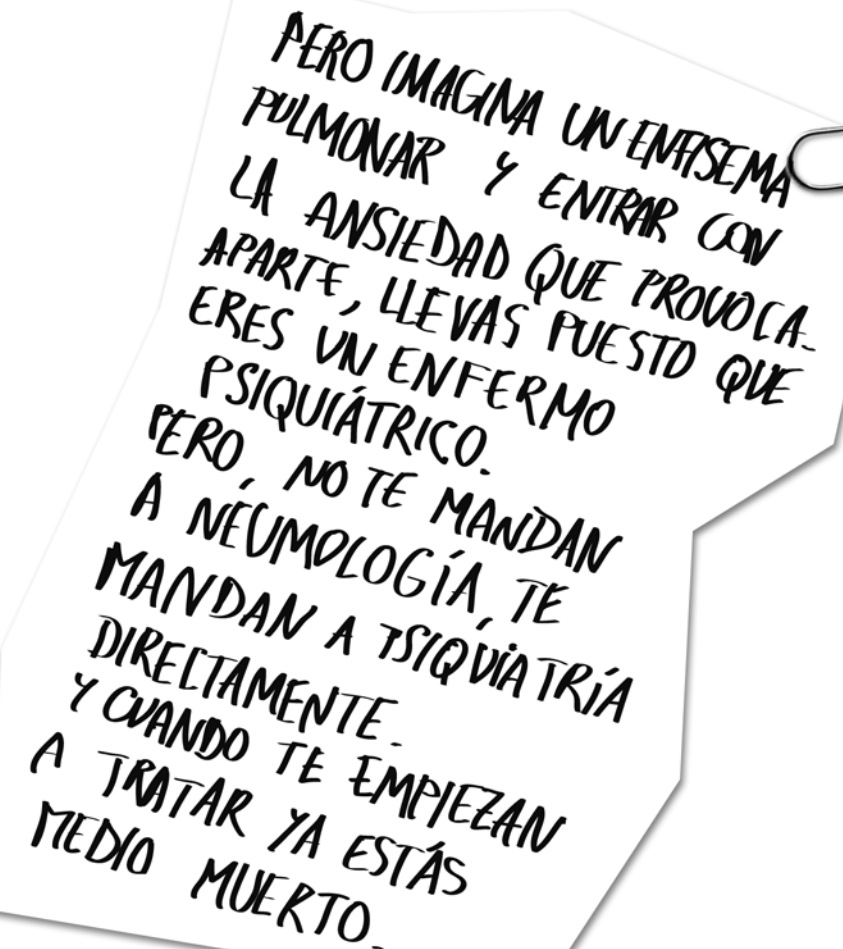 PERO IMAGINA UN ENFISEMA
PULMONAR Y ENTRAR CON
LA ANSIEDAD QUE PROVOCA.
APARTE, LLEVAS PUESTO QUE
ERES UN ENFERMO
PSIQUIÁTRICO.
PERO, NO TE MANDAN
A NEUMOLOGÍA, TE
MANDAN A PSIQUIATRÍA
DIRECTAMENTE.
Y CUANDO TE EMPIEZAN
A TRATAR YA ESTÁS
MEDIO MUERTO.